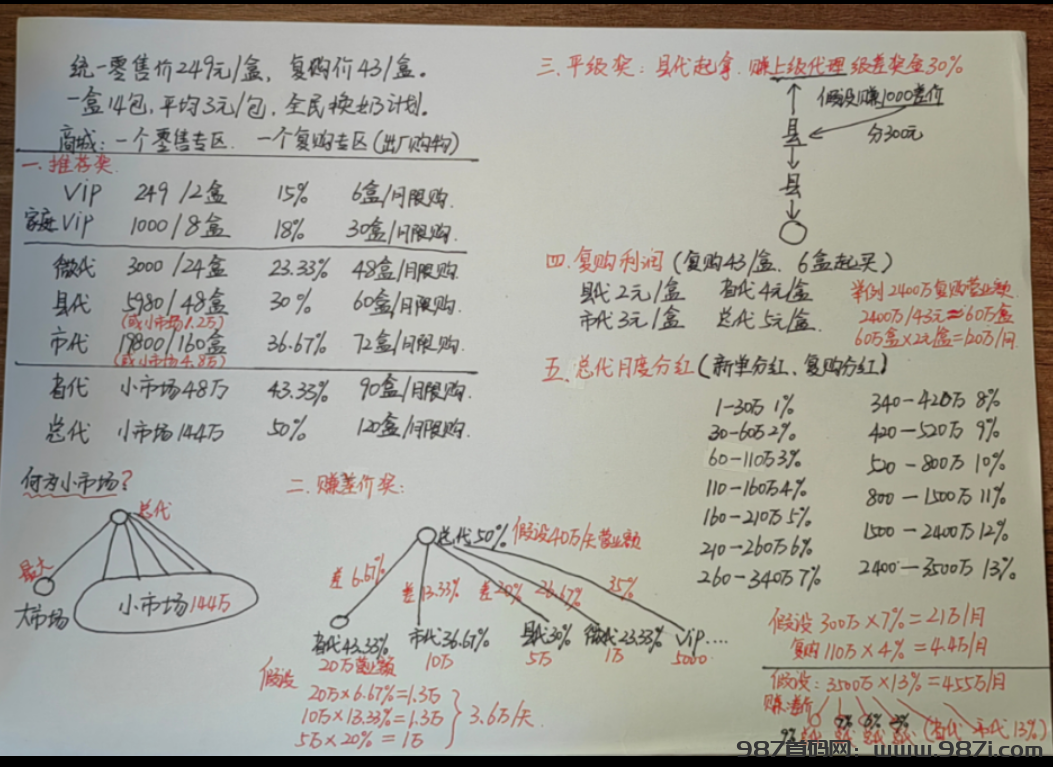 统一零售价249元/盒，复购价43/盒。
一盒14包，平均3元/包，全民换奶计划。
商城：一个零售专区. 一个复购专区(出厂购物)
一.推荐奖.
Vip 249/2盒 15% 6盒/月限购.
家庭Vip 1000/8盒 18% 30盒/月限购.
微代 3000/24盒 23.33% 48盒/月限购.
县代 5980/48盒 30% 60盒/月限购.
(或小市场1.2万)
市代 19800/160盒 36.67% 72盒/月限购.
(或小市场4.8万)
省代 小市场48万 43.33% 90盒/月限购.
总代 小市场144万 50% 120盒/月限购.
何为小市场?
总代
最大
大市场
小市场144万
二.赚差价奖:
总代50% 假设40万/天营业额
差6.67% 差13.33% 差20% 26.67% 35%
省代43.33% 市代36.67% 县代30% 微代23.33% Vip....
假设 20万营业额 10万 5万 1万 5000.
20万×6.67%=1.3万
10万×13.33%=1.3万
5万×20%=1万
3.6万/天.
三.平级奖:县代起拿.赚上级代理级差奖金30%
假设赚1000差价
县
分300元
县
四.复购利润(复购43/盒、6盒起买)
县代2元/盒 省代4元/盒
市代3元/盒 总代5元/盒.
举例2400万复购营业额.
2400万/43元≈60万盒
60万盒×2元/盒=120万/月.
五.总代月度分红(新单分红、复购分红)
1-30万1% 340-420万8%
30-60万2% 420-520万9%
60-110万3% 520-800万10%
110-160万4% 800-1500万11%
160-210万5% 1500-2400万12%
210-260万6% 2400-3500万13%
260-340万7%
假设300万×7%=21万/月
复购110万×4%=4.4万/月
假设:3500万×13%=455万/月
赚差价
(省代 市代13%)
987首码网：www.987i.com